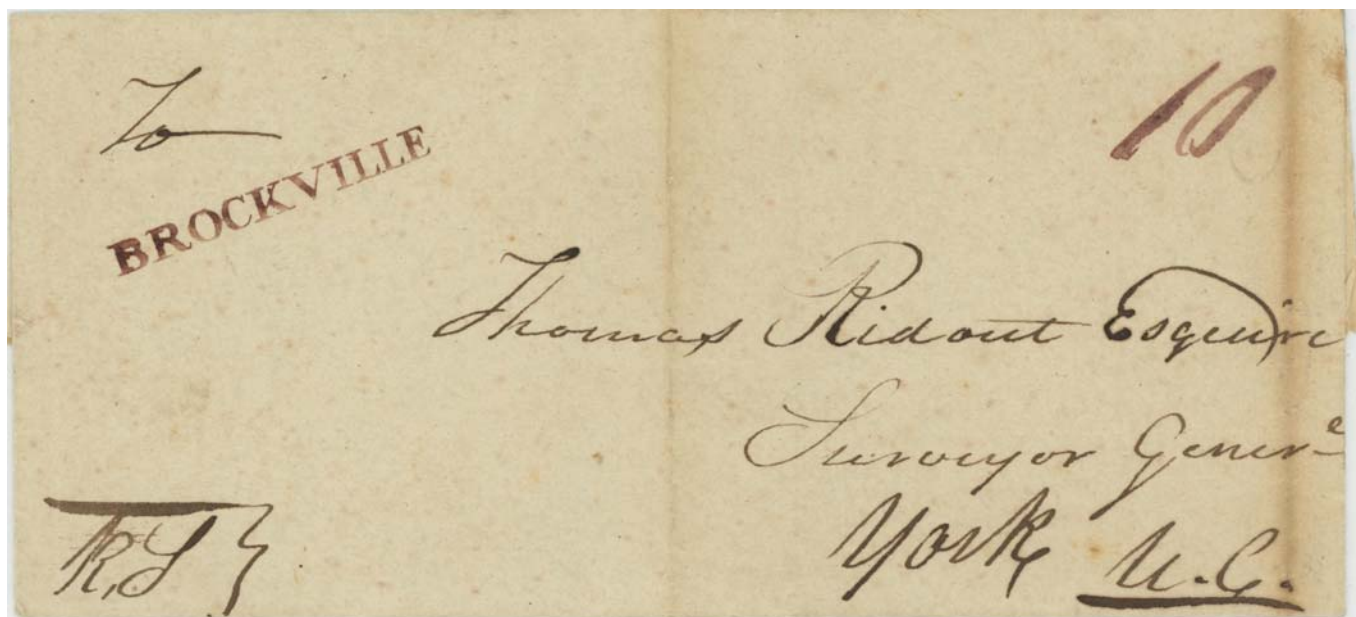 To
BROCKVILLE
10
Thomas Ridout Esquire
Surveyor Genere
York U.C.
R.S